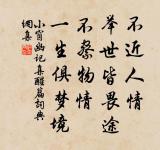 不近人情
举世皆畏途
不察物情
一生俱梦境
小窗幽記集醒篇詞典
網集